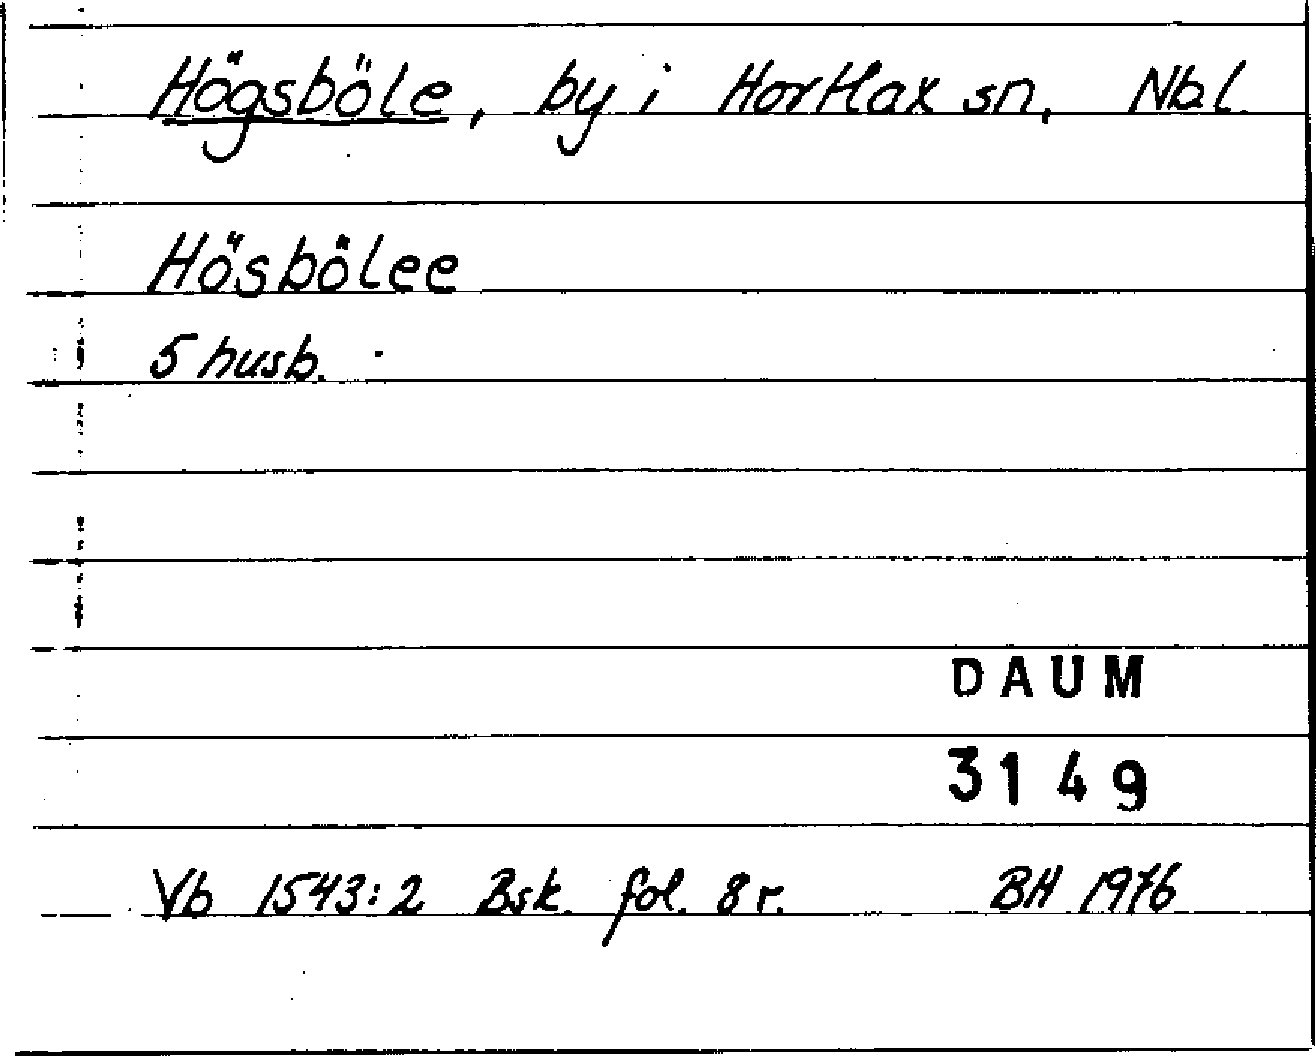 Högsböle, by i Hortlax sn, Nbl.
Hösbölee
5 husb.
DAUM
3149
Vb 1543:2 Bsk. fol. 8 r. BH 1976